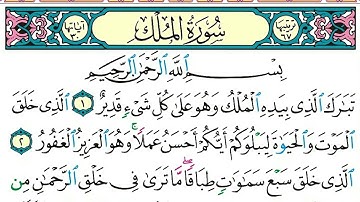 سُورَةُ الْمُلْكِ
بِسْمِ اللَّهِ الرَّحْمَٰنِ الرَّحِيمِ
تَبَارَكَ الَّذِي بِيَدِهِ الْمُلْكُ وَهُوَ عَلَىٰ كُلِّ شَيْءٍ قَدِيرٌ ١ الَّذِي خَلَقَ
الْمَوْتَ وَالْحَيَوٰةَ لِيَبْلُوَكُمْ أَيُّكُمْ أَحْسَنُ عَمَلًا ۚ وَهُوَ الْعَزِيزُ الْغَفُورُ ٢
الَّذِي خَلَقَ سَبْعَ سَمَٰوَٰتٍ طِبَاقًا ۖ مَّا تَرَىٰ فِي خَلْقِ الرَّحْمَٰنِ مِن